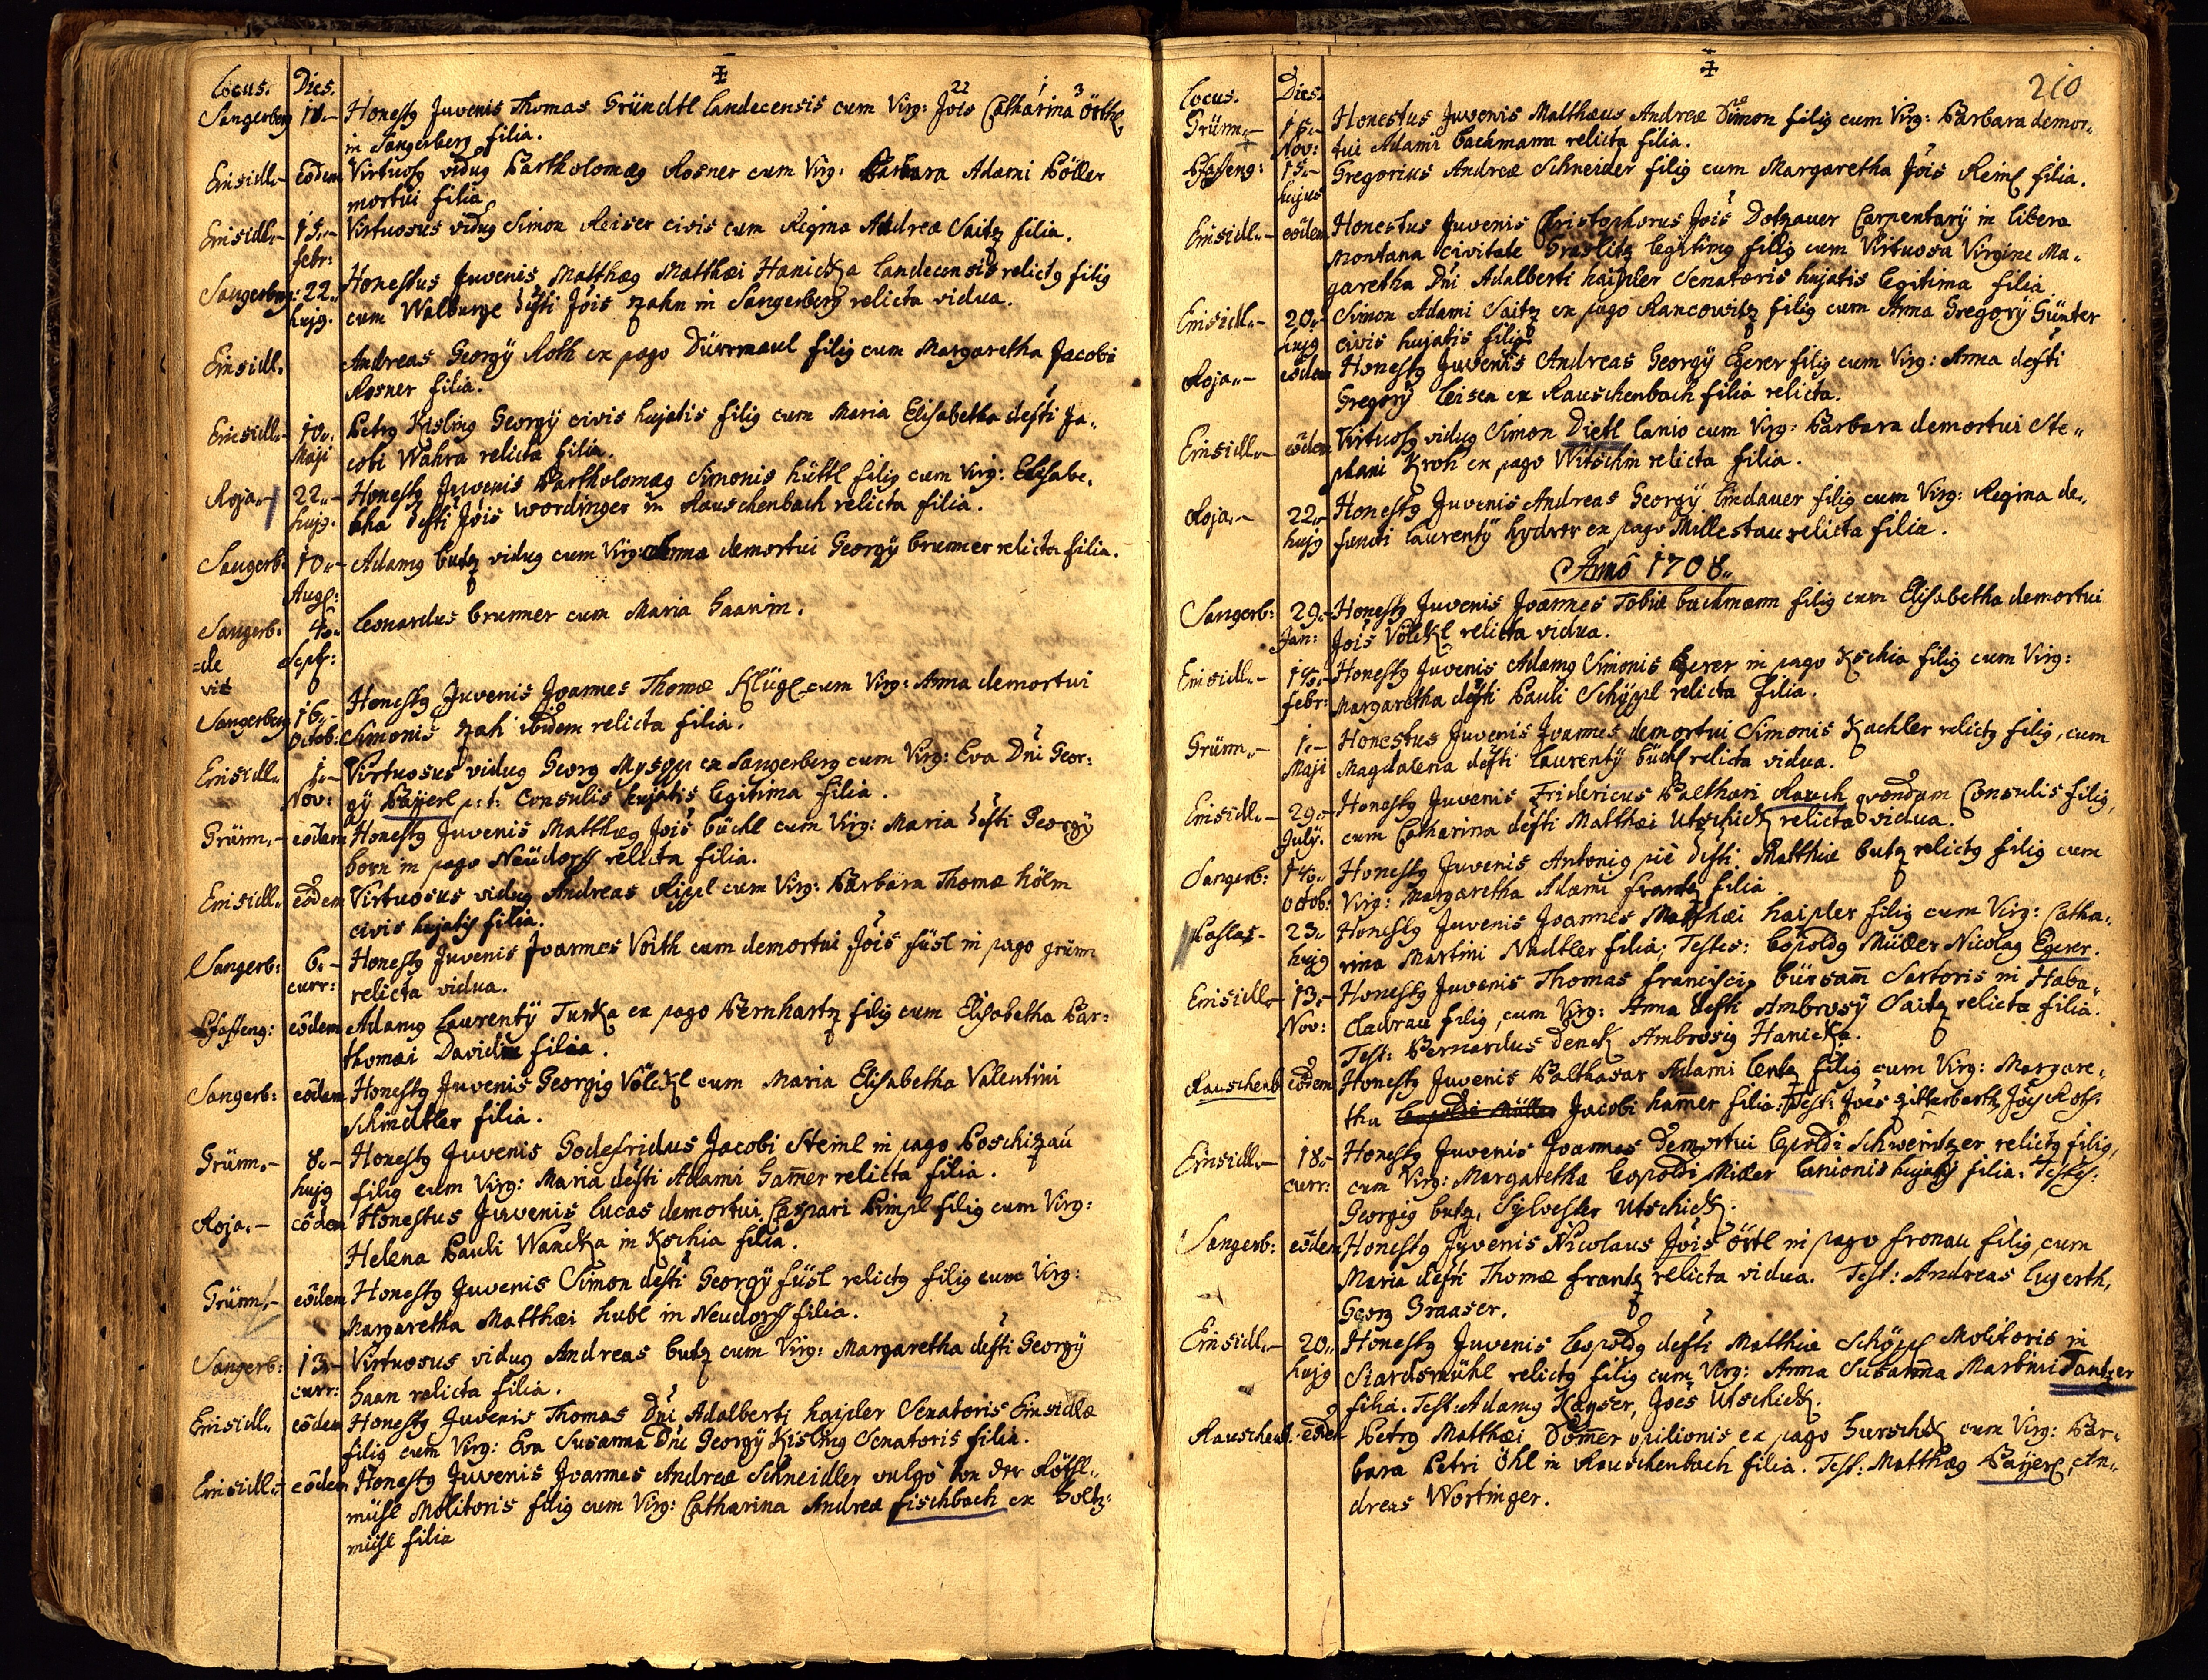 Locus. Dies.
Sangerberg 18.- Honestg Juvenis Thomas Gründtl Landecensis cum Virg: Jois Catharina Örthl
in Sangerberg filia.
Einsidl.- eodem Virtuosg vidug Bartholomæg Rosner cum Virg: Barbara Adami Böller
mortui filia
Einsidl.- 15.- Virtuosus vidug Simon Reiser civis cum Regina Andreæ Saitz filia.
febr:
Sangerberg: 22.. Honestus Juvenis Matthæg Matthæi Hanicka Landecensis relictg filig
hujg. cum Walburge defti Jois Zahn in Sangerberg relicta vidua.
Einsidl. Andreas Georgÿ Roth ex pago Dürrmaul filig cum Margaretha Jacobi
Rosner filia.
Einsidl.- 10.. Petrg Kisling Georgÿ civis hujatis filig cum Maria Elisabetha defti Ja-
Maji cobi Wahra relicta filia.
Roja.- 22.- Honestg Juvenis Bartholomæg Simonis hüttl filig cum Virg: Elisabe-
hujg. tha defti Jois Wordinger in Rauschenbach relicta filia.
Sangerb: 10.- Adamg butz vidug cum Virg: Anna demortui Georgÿ brunner relicta filia.
Aug:
Sangerb: 4.. Leonardus brunner cum Maria haanin.
=de Sept:
vit
Honestg Juvenis Joannes Thomæ Klügl cum Virg: Anna demortui
Sangerberg 16.- Simonis Zah ibidem relicta filia.
Octob:
Einsidl. 1.- Virtuosus vidug Georg Mysgyr ex Sangerberg cum Virg: Eva Dni Geor:
Nov: gÿ Baÿerl p: t: Consulis hujatis legitima filia.
Grünn.- eodem Honestg Juvenis Matthæg Jois büchl cum Virg: Maria defti Georgÿ
born in pago Neüdorff relicta filia.
Einsidl. eodem Virtuosus vidug Andreas Rippl cum Virg: Barbara Thomæ hölm
civis hujatis filia.
Sangerb: 6.- Honestg Juvenis Joannes Voith cum demortui Jois füsl in pago grünn
curr: relicta vidua.
Pfaffeng: eodem Adamg Laurentÿ Turka ex pago Bernhartz filig cum Elisabetha Bar:
thomæi David filia.
Sangerb: eodem Honestg Juvenis Georgig Völckl cum Maria Elisabetha Valentini
Schindtler filia.
Grünn.- 8.- Honestg Juvenis Godefridus Jacobi Steinl in pago Poschizau
hujg filig cum Virg: Maria defti Adami Gam̄er relicta filia.
Roja.- eodem Honestus Juvenis Lucas demortui Caspari Pimpl filig cum Virg:
Helena Pauli Wancka in Kschia filia.
Grünn.- eodem Honestg Juvenis Simon defti Georgÿ füsl relictg filig cum Virg:
Margaretha Matthæi hubl in Neudorff filia.
Sangerb: 13.- Virtuosus vidug Andreas butz cum Virg: Margaretha defti Georgÿ
curr: haan relicta filia.
Einsidl. eodem Honestg Juvenis Thomas Dni Adalberti haipler Senatoris Einsidlæ
filig cum Virg: Eva Susanna Dni Georgÿ Kisling Senatoris filia.
Einsidl.- eodem Honestg Juvenis Joannes Andreæ Schneidler vulgò von der Röthl..
mühl Molitoris filig cum Virg: Catharina Andreæ fischbach ex holtz-
mühl filia
210
Locus. Dies.
Grünn.- 15.- Honestus Juvenis Matthæus Andreæ Simon filig cum Virg: Barbara demor..
Nov: tui Adami bachmann relicta filia.
Pfaffeng: 15.- Gregorius Andreæ Schneider filig cum Margaretha Jois Reinl filia.
hujus
Einsidl.- eodem Honestus Juvenis Christophorus Jois Dotzauer Carpentarÿ in libera
montana civitate Graslitz legitimg filig cum Virtuosa Virgine Ma-
garetha Dni Adalberti haipler Senatoris hujatis legitima filia.
Einsidl.- 20.- Simon Adami Saitz ex pago Rancowitz filig cum Anna Gregorÿ Günter
hujg civis hujatis filig
Roja.- eodem Honestg Juvenis Andreas Georgÿ Egerer filig cum Virg: Anna defti
Gregorÿ Leisen ex Rauschenbach filia relicta.
Einsidl.- eodem Virtuosg vidug Simon Dietl Lanio cum Virg: Barbara demortui Ste-
phani Kroh ex pago Witschin relicta filia.
Roja.- 22.- Honestg Juvenis Andreas Georgÿ Lindauer filig cum Virg: Regina de-
hujg functi Laurentÿ hydrer ex pago Millestau relicta filia.
Anno 1708..
Sangerb: 29.- Honestg Juvenis Joannes Tobiæ bachmann filig cum Elisabetha demortui
Jan: Jois Völckl relicta vidua.
Einsidl.- 14.- Honestg Juvenis Adamg Simonis Egerer in pago Kschia filig cum Virg:
febr: Margaretha defti Pauli Schöppl relicta filia.
Grünn.- 1.- Honestus Juvenis Joannes demortui Simonis Kachler relictg filig, cum
Maji Magdalena defti Laurentÿ büchl relicta vidua.
Einsidl.- 29.- Honestg Juvenis Fridericus Balthasari Rauch quondam Consulis filig,
Julÿ. cum Catharina defti Matthæi Utschick relicta vidua.
Sangerb: 14.. Honestg Juvenis Antonig piè defti Matthiæ butz relictg filig cum
Octob: Virg: Margaretha Adami frantz filia.
Paslas- 23.- Honestg Juvenis Joannes Matthæi haipler filig cum Virg: Catha-
hujg rina Martini Nadtler filia; Testes: Lopoldg Müller Nicolag Egerer.
Einsidl.- 13.- Honestg Juvenis Thomas francisci bürsam̄ Sartoris in Haba-
Nov: cladrau filig, cum Virg: Anna defti Ambrosÿ Saitz relicta filia.
Test: Bernardus Denck Ambrosig Hanicka.
Rauschenb eodem Honestg Juvenis Balthasar Adami Lentz filig cum Virg: Margare-
tha Leopoldi Müller Jacobi hamer filia: Test: Joes zitterbarth, Joes Roth:
Einsidl.- 18.- Honestg Juvenis Joannes Demortui Lepoldi Schweintzer relictg filig,
curr: cum Virg: Margaretha Lopoldi Miller Lanionis hujatis filia. Testes:
Georgig butz, Sylvester Utschick.
Sangerb: eodem Honestg Juvenis Nicolaus Jois Örtl in pago fronau filig cum
Maria defti Thomæ frantz relicta vidua. Test: Andreas Lugerth,
Georg Graaser.
Einsidl.- 20.. Honestg Juvenis Lopoldg defti Matthiæ Schöppl Molitoris in
hujg Siardsmühl relictg filig cum Virg: Anna Susanna Martini Tantzer
filia. Test: Adamg Kayser, Joes Utschick.
Rauschenb. eodem Petrg Matthæi Dom̄er opilionis ex pago hurschk cum Virg: Bar-
bara Petri Öhl in Rauschenbach filia. Test: Matthæg Baÿerl, An-
dreas Wortinger.